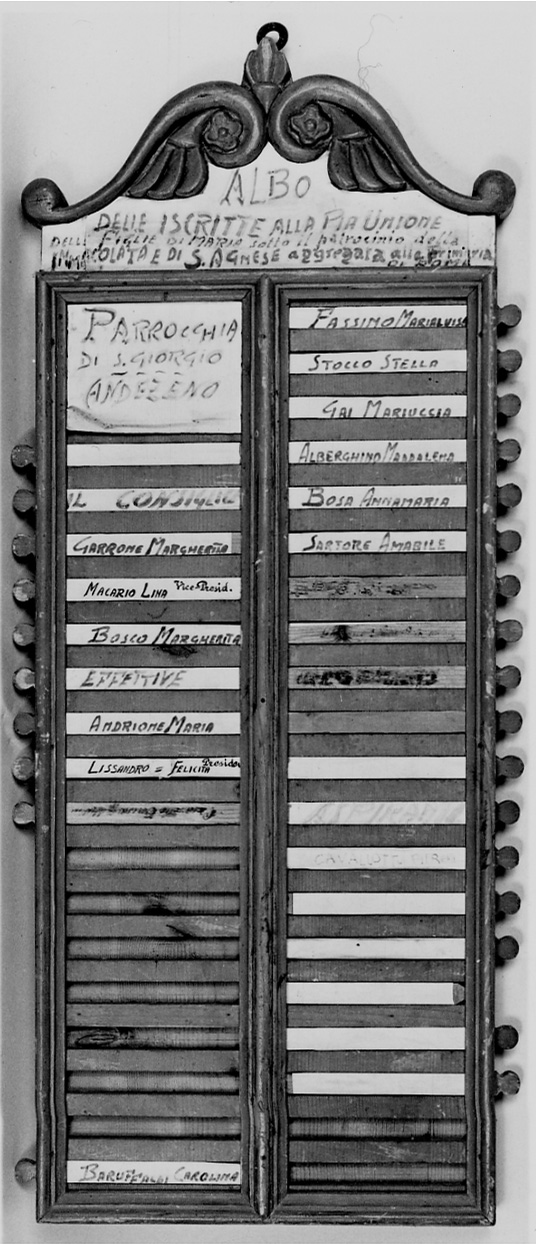 ALBO
DELLE ISCRITTE ALLA PIA UNIONE
DELLE FIGLIE DI MARIA sotto il patrocinio della
IMMACOLATA E DI S. AGNESE aggregata alla primaria
DI ROMA
PARROCCHIA
DI S. GIORGIO
ANDEZENO
IL CONSIGLIO
GARRONE MARGHERITA
MACARIO LINA Vice-Presid.
BOSCO MARGHERITA
EFFETIVE
ANDRIONE MARIA
LISSANDRO = FELICITA Presiden
BARUFFALDI CAROLINA
FASSINO MARIALUISA
STOCCO STELLA
GAI MARIUCCIA
ALBERGHINO MADDALENA
BOSA ANNAMARIA
SARTORE AMABILE
ASPIRANTI